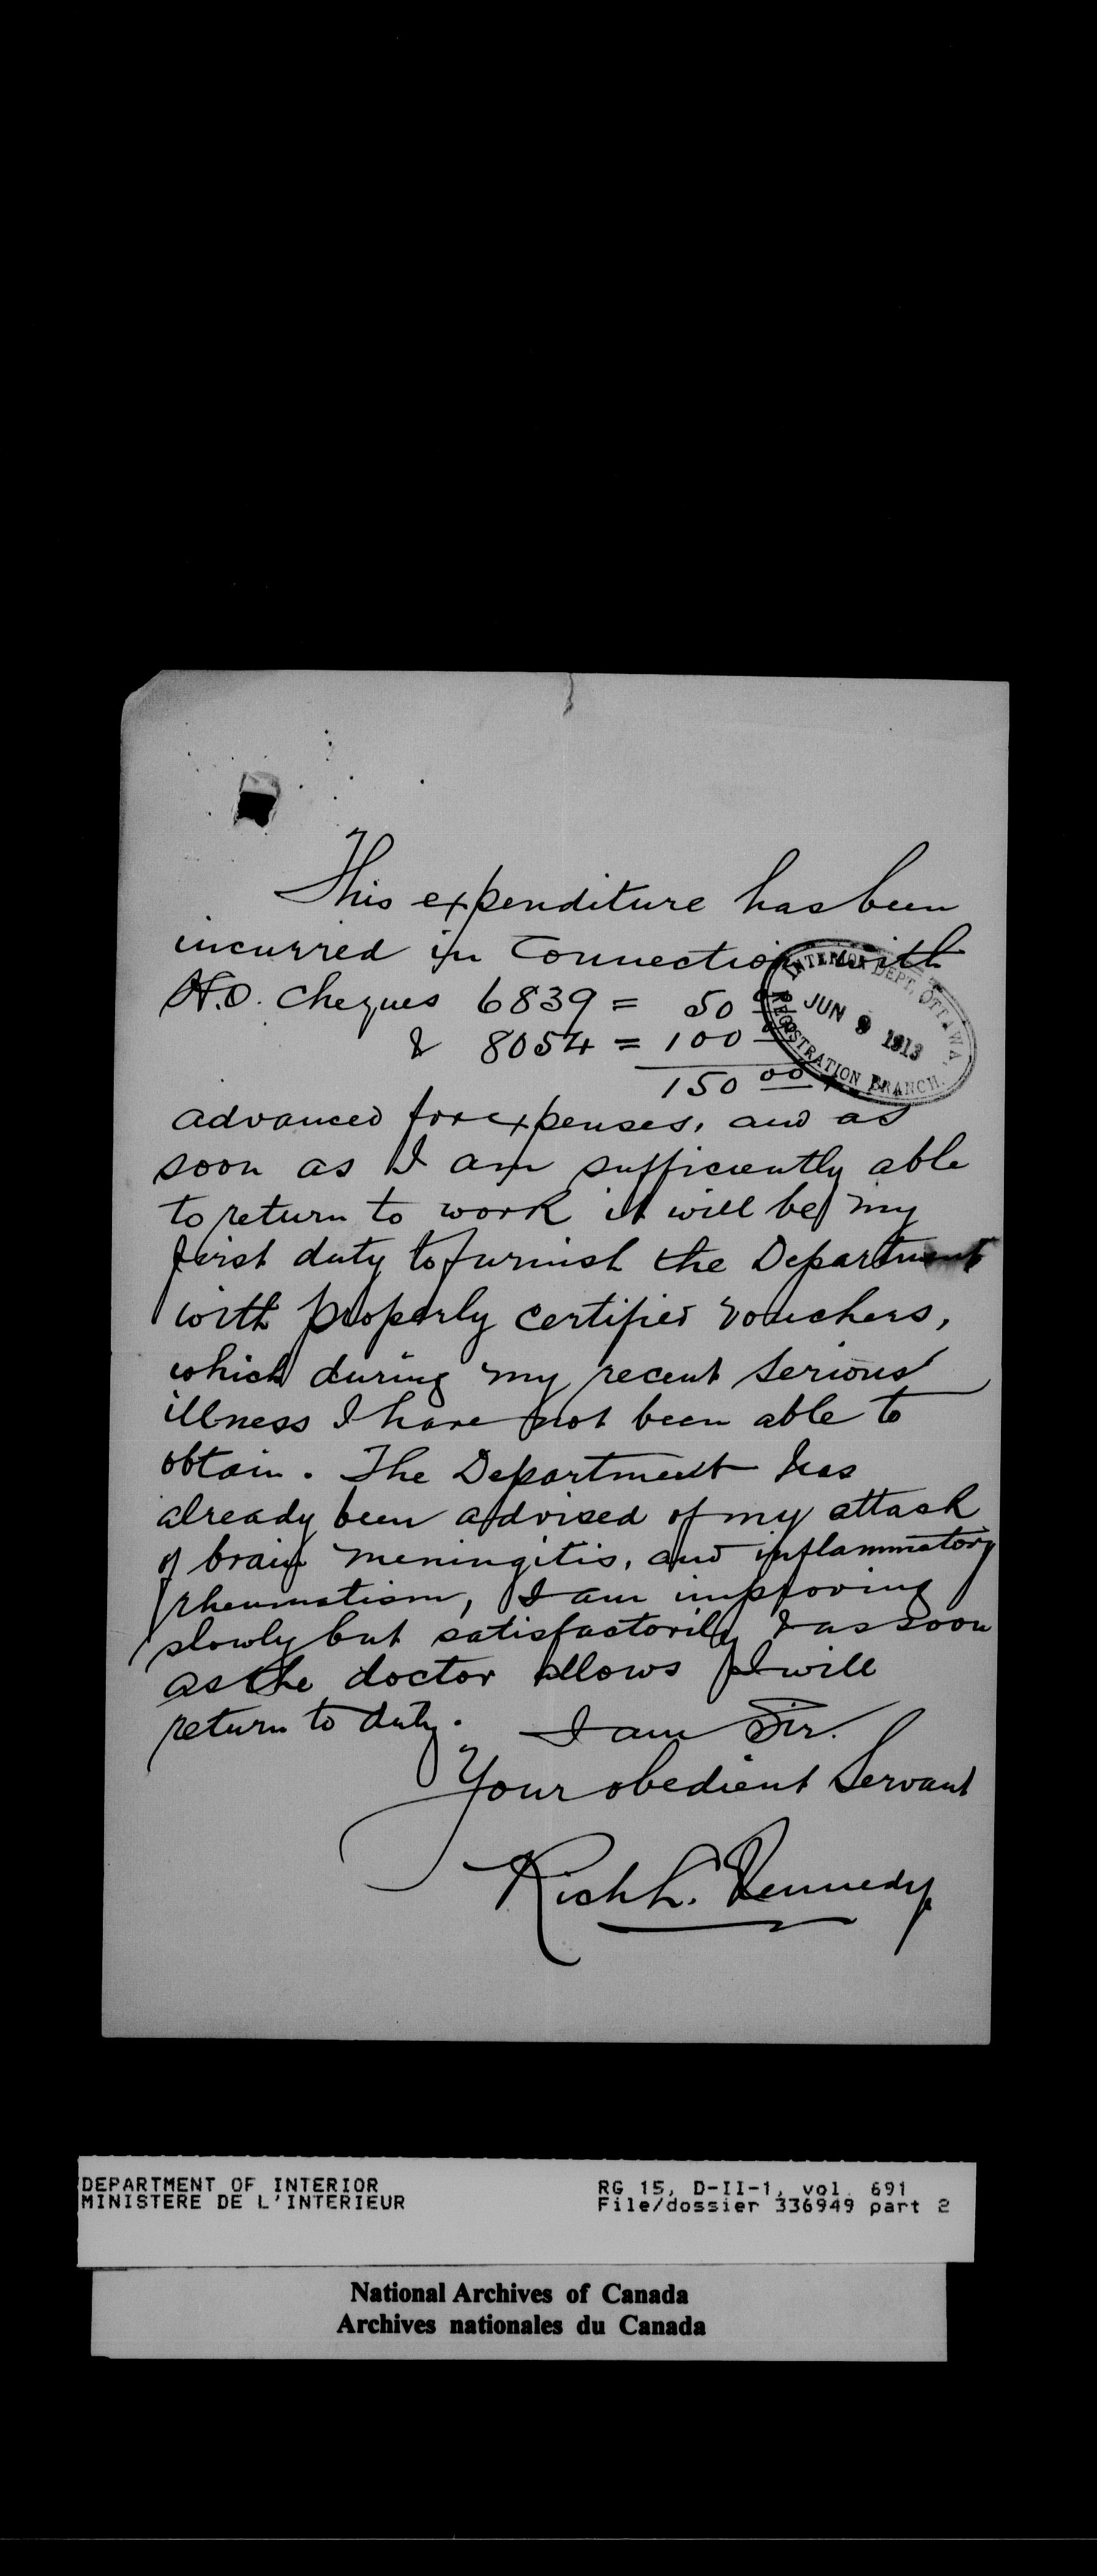 This expenditure has been
incurred in connection with
H.O. Cheques 6839 = 50
& 8054 = 100
150 00
advanced for expenses, and as
soon as I am sufficiently able
to return to work it will be my
first duty to furnish the Department
with properly certified vouchers,
which during my recent serious
illness I have not been able to
obtain. The Department has
already been advised of my attack
of brain meningitis, and inflammatory
rheumatism, I am improving
slowly but satisfactorily & as soon
as the doctor allows I will
return to duty. I am Sir.
Your obedient Servant
Richh. Kennedy
INTERIOR DEPT. OTTAWA
JUN 9 1913
REGISTRATION BRANCH.
DEPARTMENT OF INTERIOR
MINISTERE DE L'INTERIEUR
RG 15, D-II-1, vol. 691
File/dossier 336949 part 2
National Archives of Canada
Archives nationales du Canada